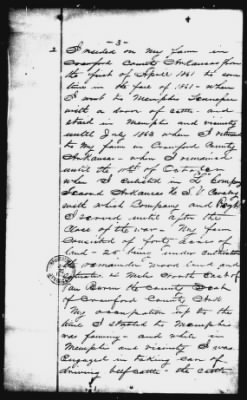 - 3 -
2 I resided on my farm in
Crawford County Arkansas from
the first of April 1861 to some
time in the fall of 1861 - when
I went to Memphis Tennessee
with a drove of cattle - and
staid in Memphis and vicinity
until July 1863 when I returned
to my farm in Crawford County
Arkansas - when I remained
until the 10th of October
when I enlisted in Company
Second Arkansas Cavalry
with which Company and Regt
I served until after the
close of the war - My farm
consisted of forty acres of
land - 20 being under cultivation
the remainder wood land and
situate 4 miles North East of
Van Buren the County Seat
of Crawford County Ark
My occupation up to the
time I started to Memphis
was farming - and while in
Memphis and vicinity I was
engaged in taking care of
driving beef cattle - the cattle